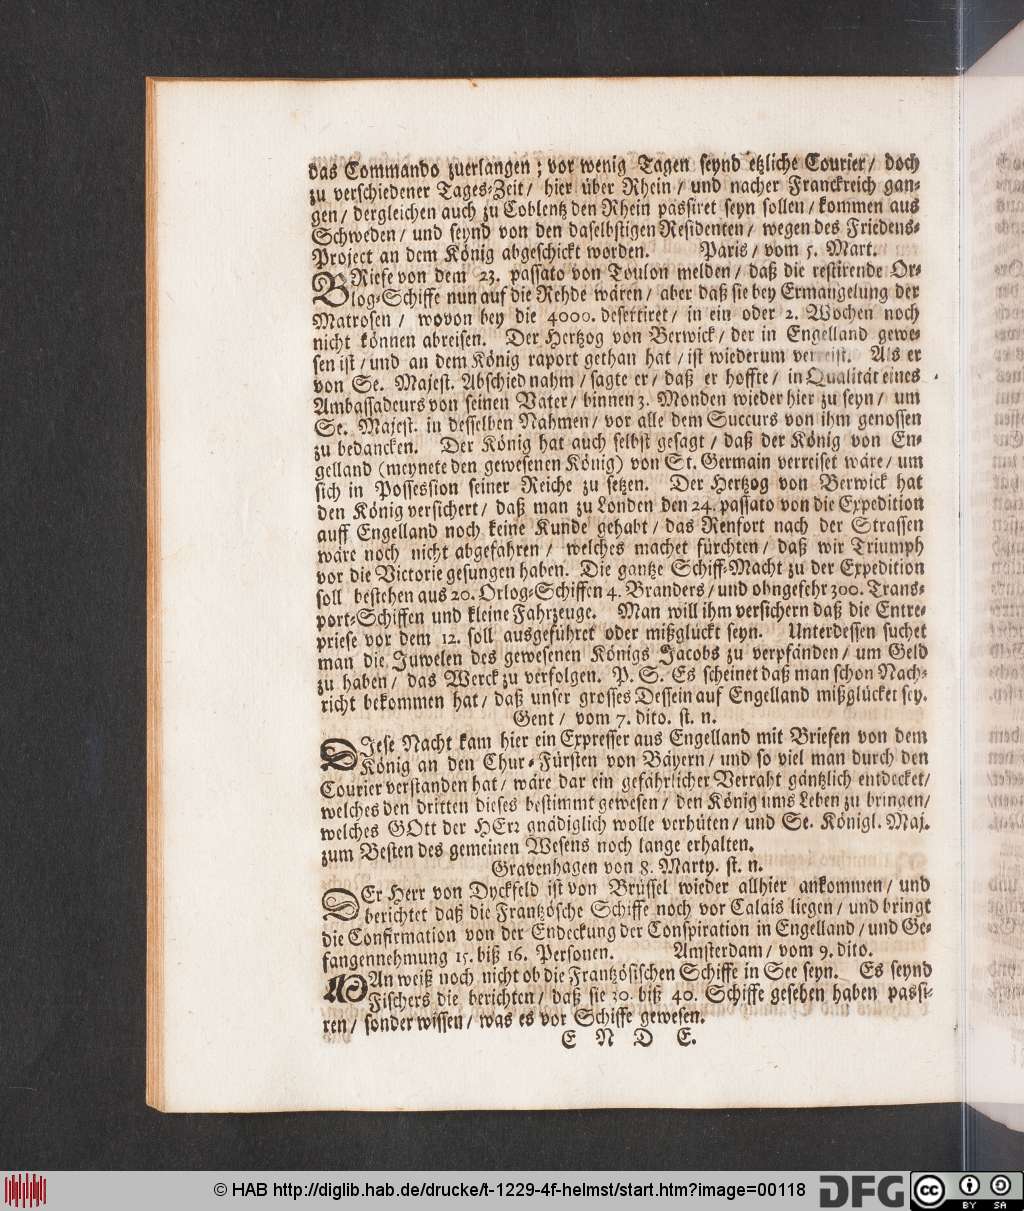 das Commando zuerlangen; vor wenig Tagen seynd etzliche Courier/ doch
zu verschiedener Tages-Zeit/ hier über Rhein/ und nacher Franckreich gan-
gen/ dergleichen auch zu Coblentz den Rhein passiret seyn sollen/ kommen aus
Schweden/ und seynd von den daselbstigen Residenten/ wegen des Friedens-
Project an dem König abgeschickt worden. Paris/ vom 5. Mart.
BRiefe von dem 23. passato von Toulon melden/ daß die restirende Or-
log-Schiffe nun auf die Rehde wären/ aber daß sie bey Ermangelung der
Matrosen/ wovon bey die 4000. desertiret/ in ein oder 2. Wochen noch
nicht können abreisen. Der Hertzog von Berwick/ der in Engelland gewe-
sen ist/ und an dem König raport gethan hat/ ist wiederum verreist. Als er
von Se. Majest. Abschied nahm/ sagte er/ daß er hoffte/ in Qualität eines
Ambassadeurs von seinen Vater/ binnen 3. Monden wieder hier zu seyn/ um
Se. Majest. in desselben Nahmen/ vor alle dem Succurs von ihm genossen
zu bedancken. Der König hat auch selbst gesagt/ daß der König von En-
gelland (meynete den gewesenen König) von St. Germain verreiset wäre/ um
sich in Possession seiner Reiche zu setzen. Der Hertzog von Berwick hat
den König versichert/ daß man zu Londen den 24. passato von die Expedition
auff Engelland noch keine Kunde gehabt/ das Renfort nach der Strassen
wäre noch nicht abgefahren/ welches machet fürchten/ daß wir Triumph
vor die Victorie gesungen haben. Die gantze Schiff-Macht zu der Expedition
soll bestehen aus 20. Orlog-Schiffen 4. Branders/ und obngefehr 300. Trans-
port-Schiffen und kleine Fahrzeuge. Man will ihm versichern daß die Entre-
priese vor dem 12. soll ausgeführet oder mißglückt seyn. Unterdessen suchet
man die Juwelen des gewesenen Königs Jacobs zu verpfänden/ um Geld
zu haben/ das Werck zu verfolgen. P. S. Es scheinet daß man schon Nach-
richt bekommen hat/ daß unser grosses Dessein auf Engelland mißglücket sey.
Gent/ vom 7. dito. st. n.
DIese Nacht kam hier ein Expresser aus Engelland mit Briefen von dem
König an den Chur-Fürsten von Bäyern/ und so viel man durch den
Courier verstanden hat/ wäre dar ein gefährlicher Verraht gäntzlich entdecket/
welches den dritten dieses bestimmt gewesen/ den König ums Leben zu bringen/
welches GOtt der HErr gnädiglich wolle verhüten/ und Se. Königl. Maj.
zum Besten des gemeinen Wesens noch lange erhalten.
Gravenhagen von 8. Marty. st. n.
DEr Herr von Dyckfeld ist von Brüssel wieder allhier ankommen/ und
berichtet daß die Frantzösche Schiffe noch vor Calais liegen/ und bringt
die Confirmation von der Endeckung der Conspiration in Engelland/ und Ge-
fangennehmung 15. biß 16. Personen. Amsterdam/ vom 9. dito.
MAn weiß noch nicht ob die Frantzösischen Schiffe in See seyn. Es seynd
Fischers die berichten/ daß sie 30. biß 40. Schiffe gesehen haben passi-
ren/ sonder wissen/ was es vor Schiffe gewesen.
E N D E.
© HAB http://diglib.hab.de/drucke/t-1229-4f-helmst/start.htm?image=00118
DFG
cc BY SA